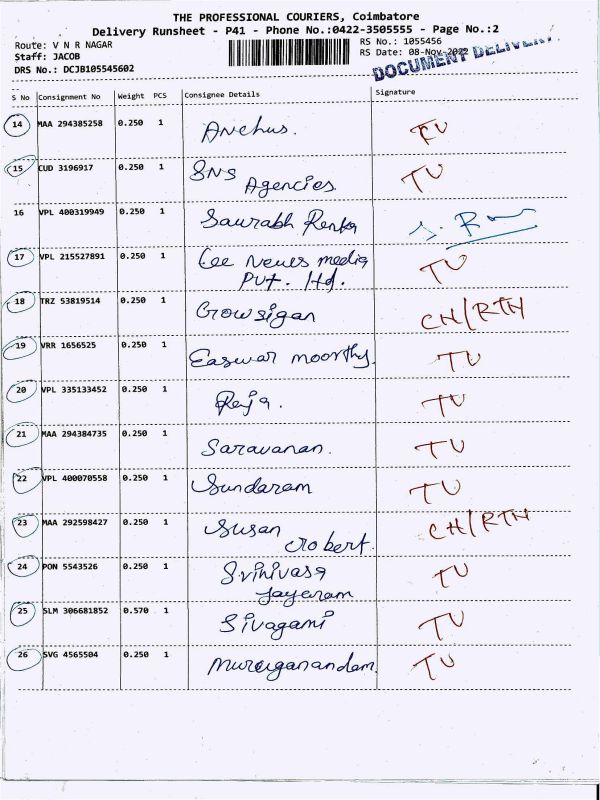 THE PROFESSIONAL COURIERS, Coimbatore
Delivery Runsheet - P41 - Phone No.:0422-3505555 - Page No.:2
Route: V N R NAGAR RS No.: 1055456
Staff: JACOB RS Date: 08-Nov-2022
DRS No.: DCJB105545602 DOCUMENT DELIVERY
S No Consignment No Weight PCS Consignee Details Signature
14 MAA 294385258 0.250 1 TU
15 CUD 3196917 0.250 1 SNS TU
Agencies
16 VPL 400319949 0.250 1 Saurabh
17 VPL 215527891 0.250 1 Lee News media TU
Pvt. Ltd.
18 TRZ 53819514 0.250 1 Gowsigan CH/RTN
19 VRR 1656525 0.250 1 Easwar moorthy. TU
20 VPL 335133452 0.250 1 Raja. TU
21 MAA 294384735 0.250 1 Saravanan. TU
22 VPL 400070558 0.250 1 Sundaram TU
23 MAA 292598427 0.250 1 Susan CH/RTN
robert.
24 PON 5543526 0.250 1 Srinivasa TU
Jayaram
25 SLM 306681852 0.570 1 Sivagami TU
26 SVG 4565504 0.250 1 Muruganandam TU